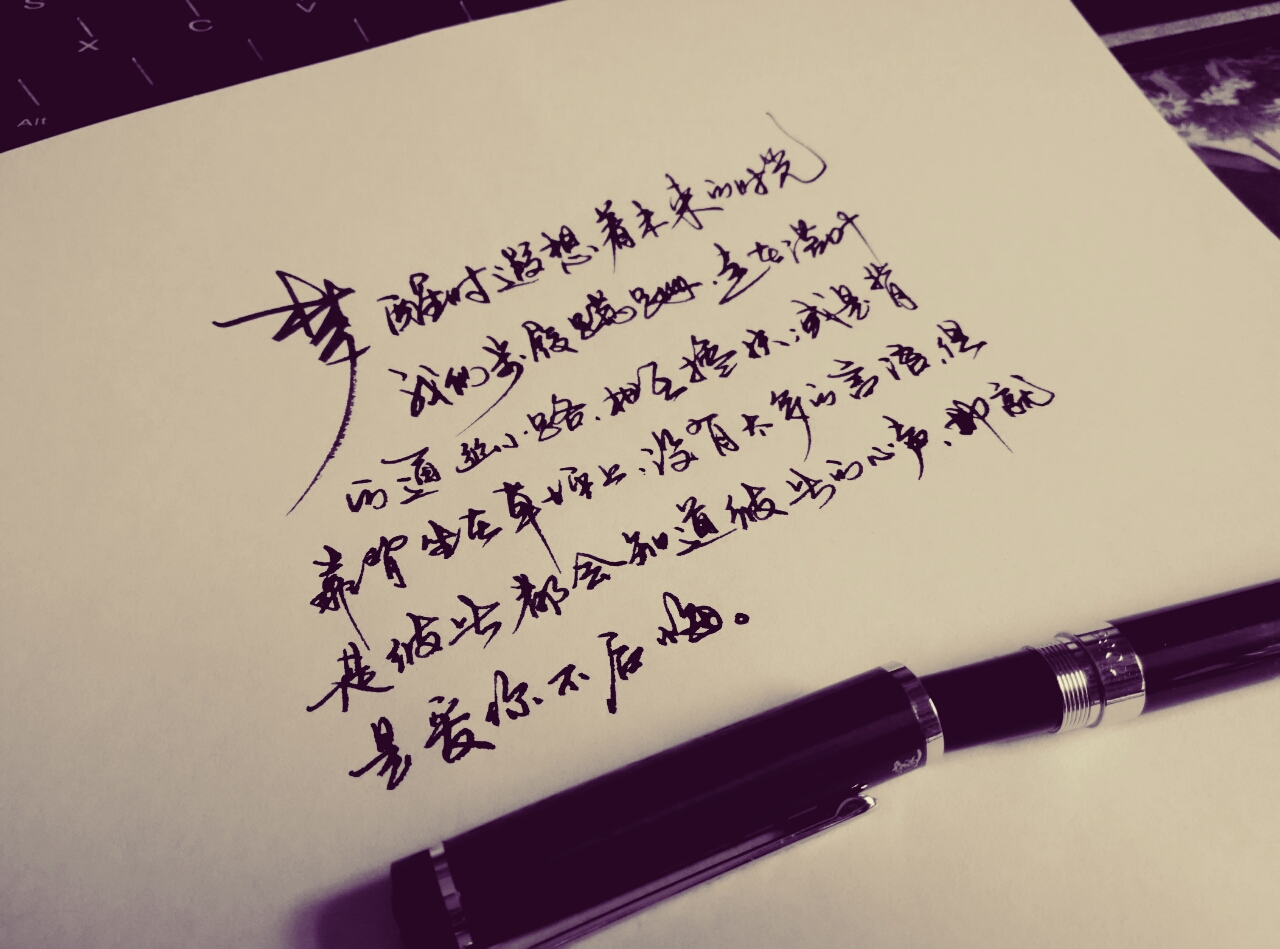 S
X
C
V
Alt
梦醒时遐想着未来的时光
我们步履蹒跚.走在落叶
的通幽小路.相互搀扶;或是背
靠背坐在草坪上.没有太多的言语.但
是彼此都会知道彼此的心声、那就
是爱你不后悔。